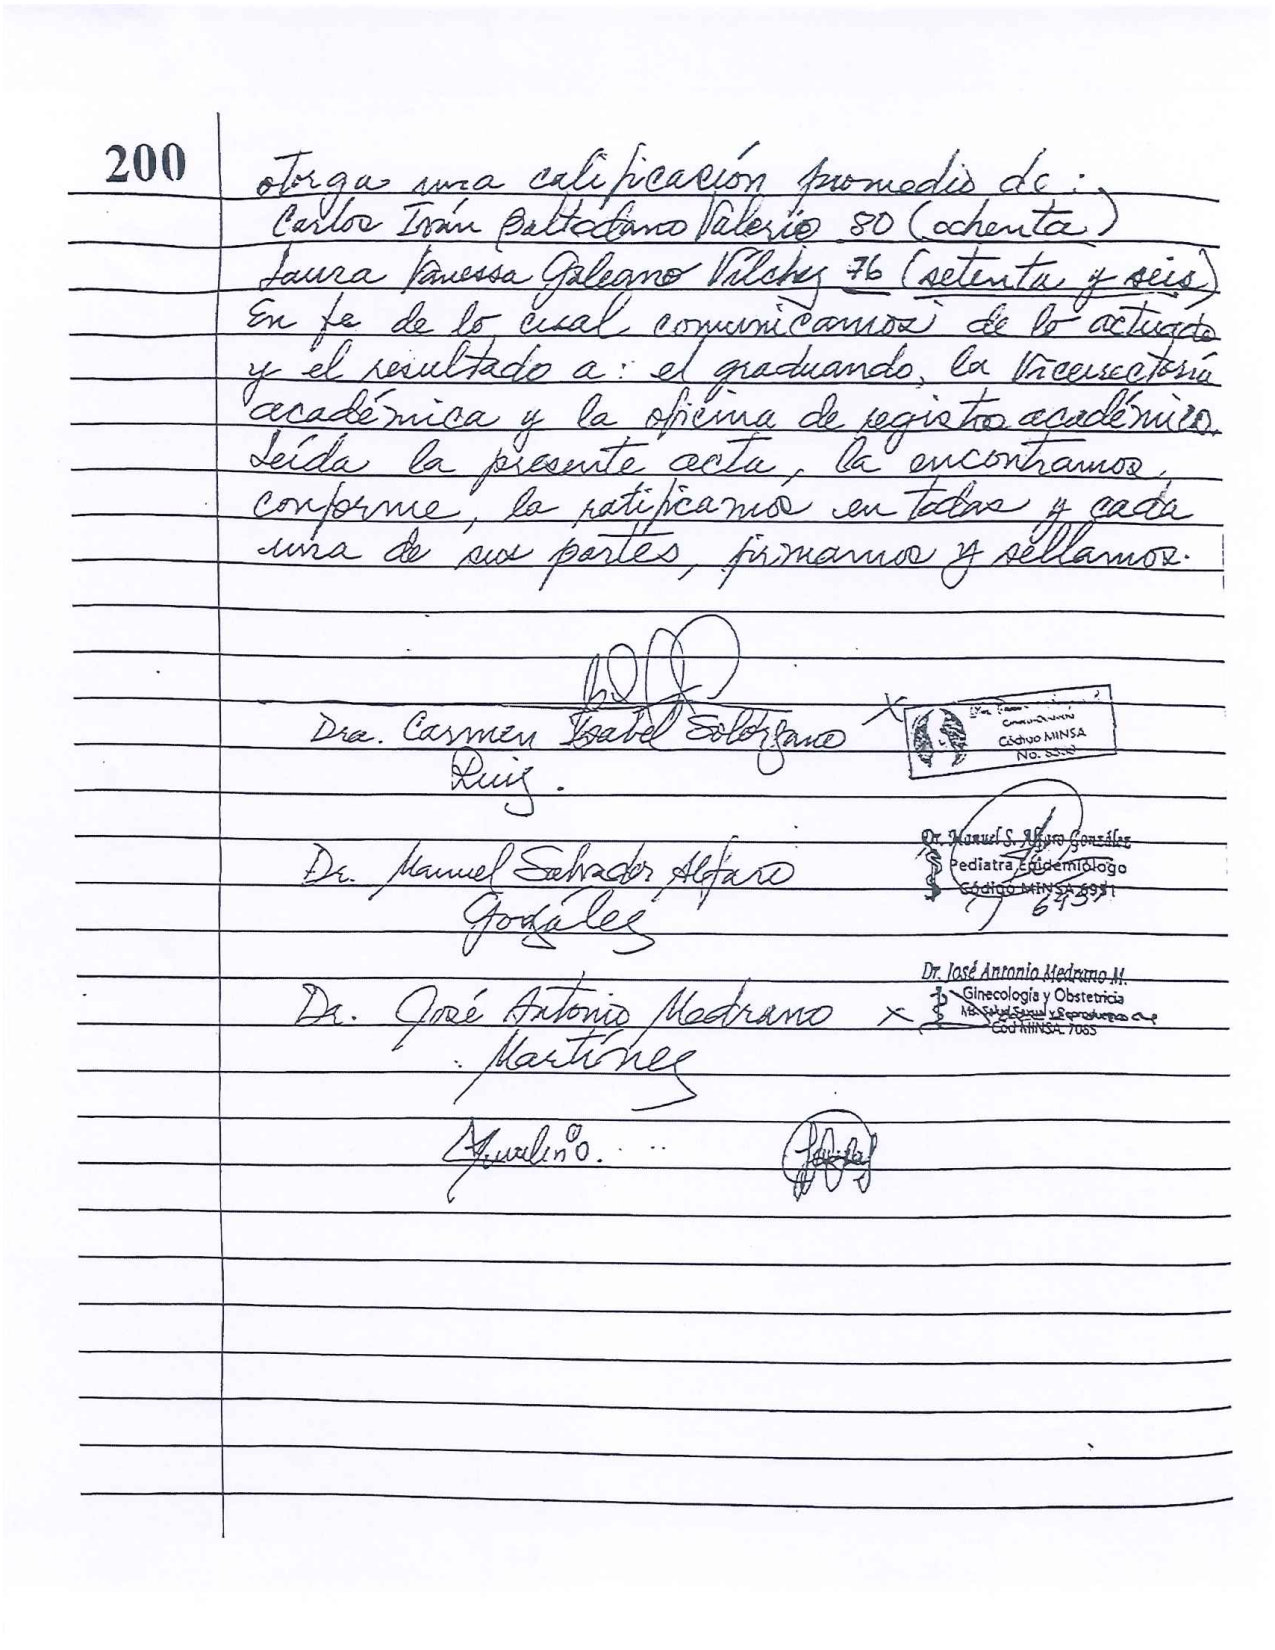 200
otorga una calificación promedio de:
Carlos Iván Baltodano Valerio 80 (ochenta)
Laura Vanessa Galeano Vílchez 76 (setenta y seis)
En fe de lo cual comunicamos de lo actuado
y el resultado a: el graduando, la Vicerrectoría
académica y la oficina de registro académico.
Leída la presente acta, la encontramos
conforme, la ratificamos en todas y cada
una de sus partes, firmamos y sellamos.
Dra. Carmen Isabel Solórzano
Ruiz.
Código MINSA
No.
Dr. Manuel Salvador Alfaro
González
Dr. Manuel S. Alfaro González
Pediatra Epidemiólogo
Código MINSA 6931
6931
Dr. José Antonio Medrano
Martínez
Dr. José Antonio Medrano M.
Ginecología y Obstetricia
Cod MINSA. 7065